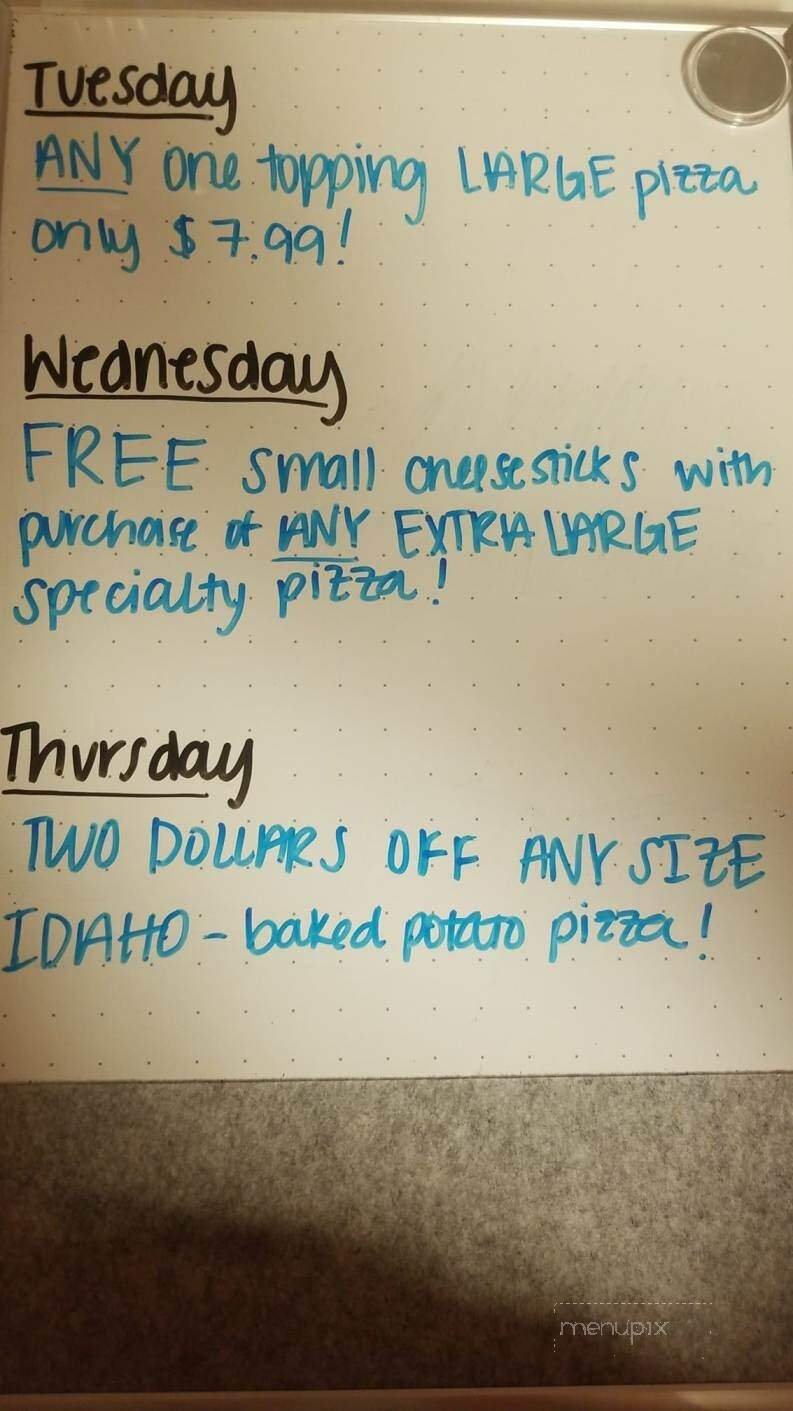 Tuesday
ANY one topping LARGE pizza
only $7.99!
Wednesday
FREE small cheesesticks with
purchase of ANY EXTRA LARGE
specialty pizza!
Thursday
TWO DOLLARS OFF ANY SIZE
IDAHO - baked potato pizza!
menupix